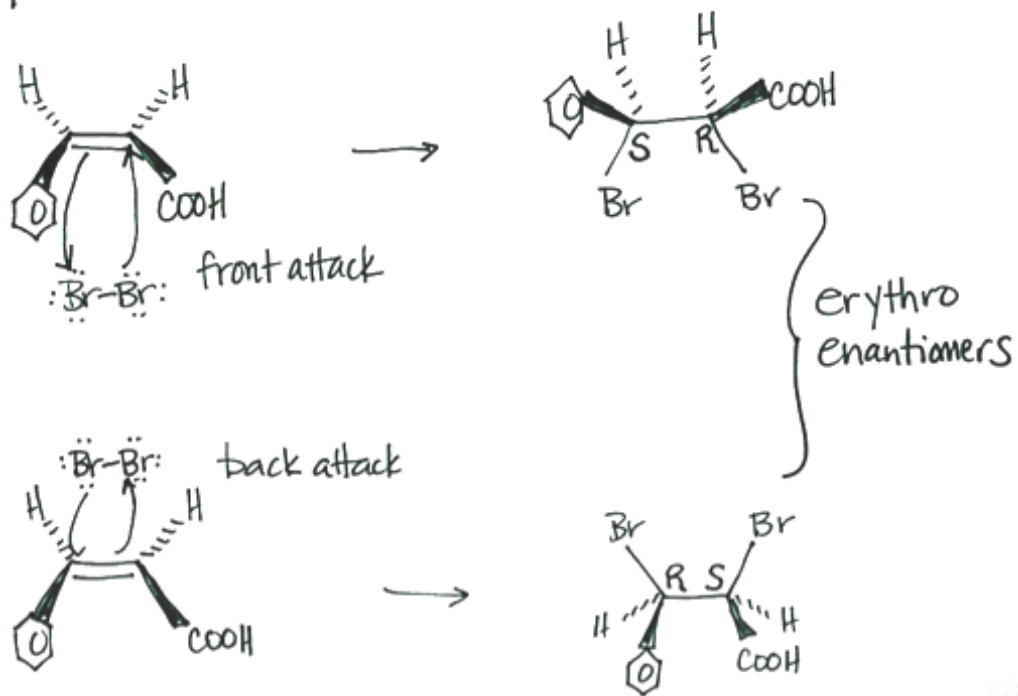 H H
COOH
:Br-Br:
front attack
H H
COOH
S R
Br Br
erythro
enantiomers
:Br-Br:
back attack
H H
COOH
Br Br
R S
H H
COOH